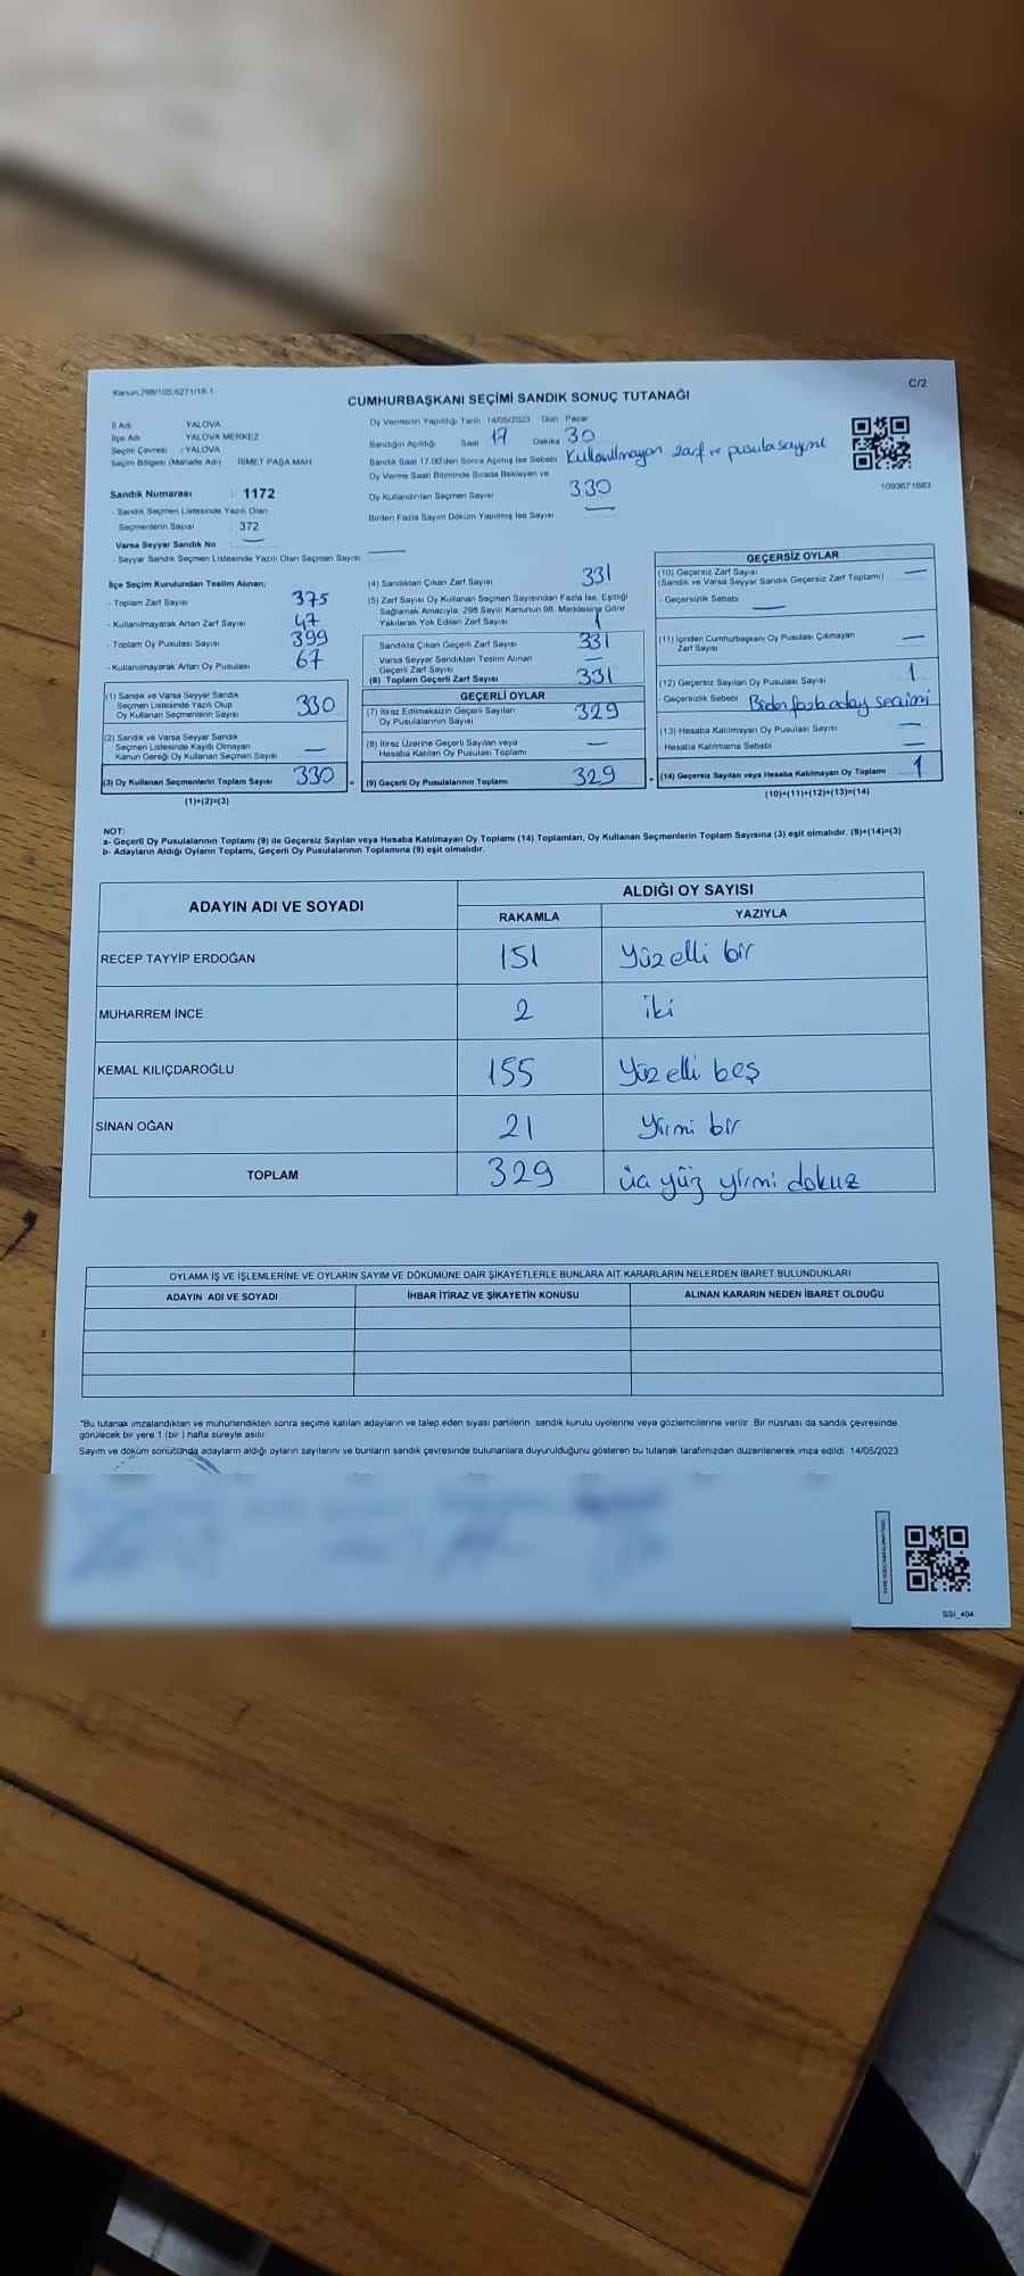 Kanun:298/105,6271/18:1
C/2
CUMHURBAŞKANI SEÇİMİ SANDIK SONUÇ TUTANAĞI
İl Adı YALOVA
İlçe Adı YALOVA MERKEZ
Seçim Çevresi : YALOVA
Seçim Bölgesi (Mahalle Adı) İSMET PAŞA MAH.
Sandık Numarası : 1172
- Sandık Seçmen Listesinde Yazılı Olan
Seçmenlerin Sayısı 372
Varsa Seyyar Sandık No —
- Seyyar Sandık Seçmen Listesinde Yazılı Olan Seçmen Sayısı —
Oy Vermenin Yapıldığı Tarih 14/05/2023 Gün Pazar
Sandığın Açıldığı Saat 17 Dakika 30
Sandık Saat 17.00'den Sonra Açılmış İse Sebebi Kullanılmayan zarf ve pusula sayımı
Oy Verme Saati Bitiminde Sırada Bekleyen ve
Oy Kullandırılan Seçmen Sayısı 330
Birden Fazla Sayım Döküm Yapılmış İse Sayısı —
1093671683
İlçe Seçim Kurulundan Teslim Alınan;
- Toplam Zarf Sayısı 375
- Kullanılmayarak Artan Zarf Sayısı 47
- Toplam Oy Pusulası Sayısı 399
- Kullanılmayarak Artan Oy Pusulası 67
(1) Sandık ve Varsa Seyyar Sandık
Seçmen Listesinde Yazılı Olup
Oy Kullanan Seçmenlerin Sayısı 330
(2) Sandık ve Varsa Seyyar Sandık
Seçmen Listesinde Kayıtlı Olmayan
Kanun Gereği Oy Kullanan Seçmen Sayısı —
(3) Oy Kullanan Seçmenlerin Toplam Sayısı 330 =
(1)+(2)=(3)
(4) Sandıktan Çıkan Zarf Sayısı 331
(5) Zarf Sayısı Oy Kullanan Seçmen Sayısından Fazla İse, Eşitliği
Sağlamak Amacıyla, 298 Sayılı Kanunun 98. Maddesine Göre
Yakılarak Yok Edilen Zarf Sayısı 1
Sandıkta Çıkan Geçerli Zarf Sayısı 331
Varsa Seyyar Sandıktan Teslim Alınan
Geçerli Zarf Sayısı —
(6) Toplam Geçerli Zarf Sayısı 331
GEÇERLİ OYLAR
(7) İtiraz Edilmeksizin Geçerli Sayılan
Oy Pusulalarının Sayısı 329
(8) İtiraz Üzerine Geçerli Sayılan veya
Hesaba Katılan Oy Pusulası Toplamı —
(9) Geçerli Oy Pusulalarının Toplamı 329
GEÇERSİZ OYLAR
(10) Geçersiz Zarf Sayısı —
(Sandık ve Varsa Seyyar Sandık Geçersiz Zarf Toplamı)
- Geçersizlik Sebebi —
(11) İçinden Cumhurbaşkanı Oy Pusulası Çıkmayan
Zarf Sayısı —
(12) Geçersiz Sayılan Oy Pusulası Sayısı 1
- Geçersizlik Sebebi Birden fazla aday seçimi
(13) Hesaba Katılmayan Oy Pusulası Sayısı —
Hesaba Katılmama Sebebi —
(14) Geçersiz Sayılan veya Hesaba Katılmayan Oy Toplamı 1
(10)+(11)+(12)+(13)=(14)
NOT:
a- Geçerli Oy Pusulalarının Toplamı (9) ile Geçersiz Sayılan veya Hesaba Katılmayan Oy Toplamı (14) Toplamları, Oy Kullanan Seçmenlerin Toplam Sayısına (3) eşit olmalıdır. (9)+(14)=(3)
b- Adayların Aldığı Oyların Toplamı, Geçerli Oy Pusulalarının Toplamına (9) eşit olmalıdır.
ADAYIN ADI VE SOYADI
ALDIĞI OY SAYISI
RAKAMLA YAZIYLA
RECEP TAYYİP ERDOĞAN 151 Yüz elli bir
MUHARREM İNCE 2 iki
KEMAL KILIÇDAROĞLU 155 Yüz elli beş
SİNAN OĞAN 21 Yirmi bir
TOPLAM 329 üç yüz yirmi dokuz
OYLAMA İŞ VE İŞLEMLERİNE VE OYLARIN SAYIM VE DÖKÜMÜNE DAİR ŞİKAYETLERLE BUNLARA AİT KARARLARIN NELERDEN İBARET BULUNDUKLARI
ADAYIN ADI VE SOYADI İHBAR İTİRAZ VE ŞİKAYETİN KONUSU ALINAN KARARIN NEDEN İBARET OLDUĞU
*Bu tutanak imzalandıktan ve mühürlendikten sonra seçime katılan adayların ve talep eden siyasi partilerin sandık kurulu üyelerine veya gözlemcilerine verilir. Bir nüshası da sandık çevresinde
görülecek bir yere 1 (bir) hafta süreyle asılır
Sayım ve döküm sonucunda adayların aldığı oyların sayılarını ve bunların sandık çevresinde bulunanlara duyurulduğunu gösteren bu tutanak tarafımızdan düzenlenerek imza edildi. 14/05/2023
SSI_404